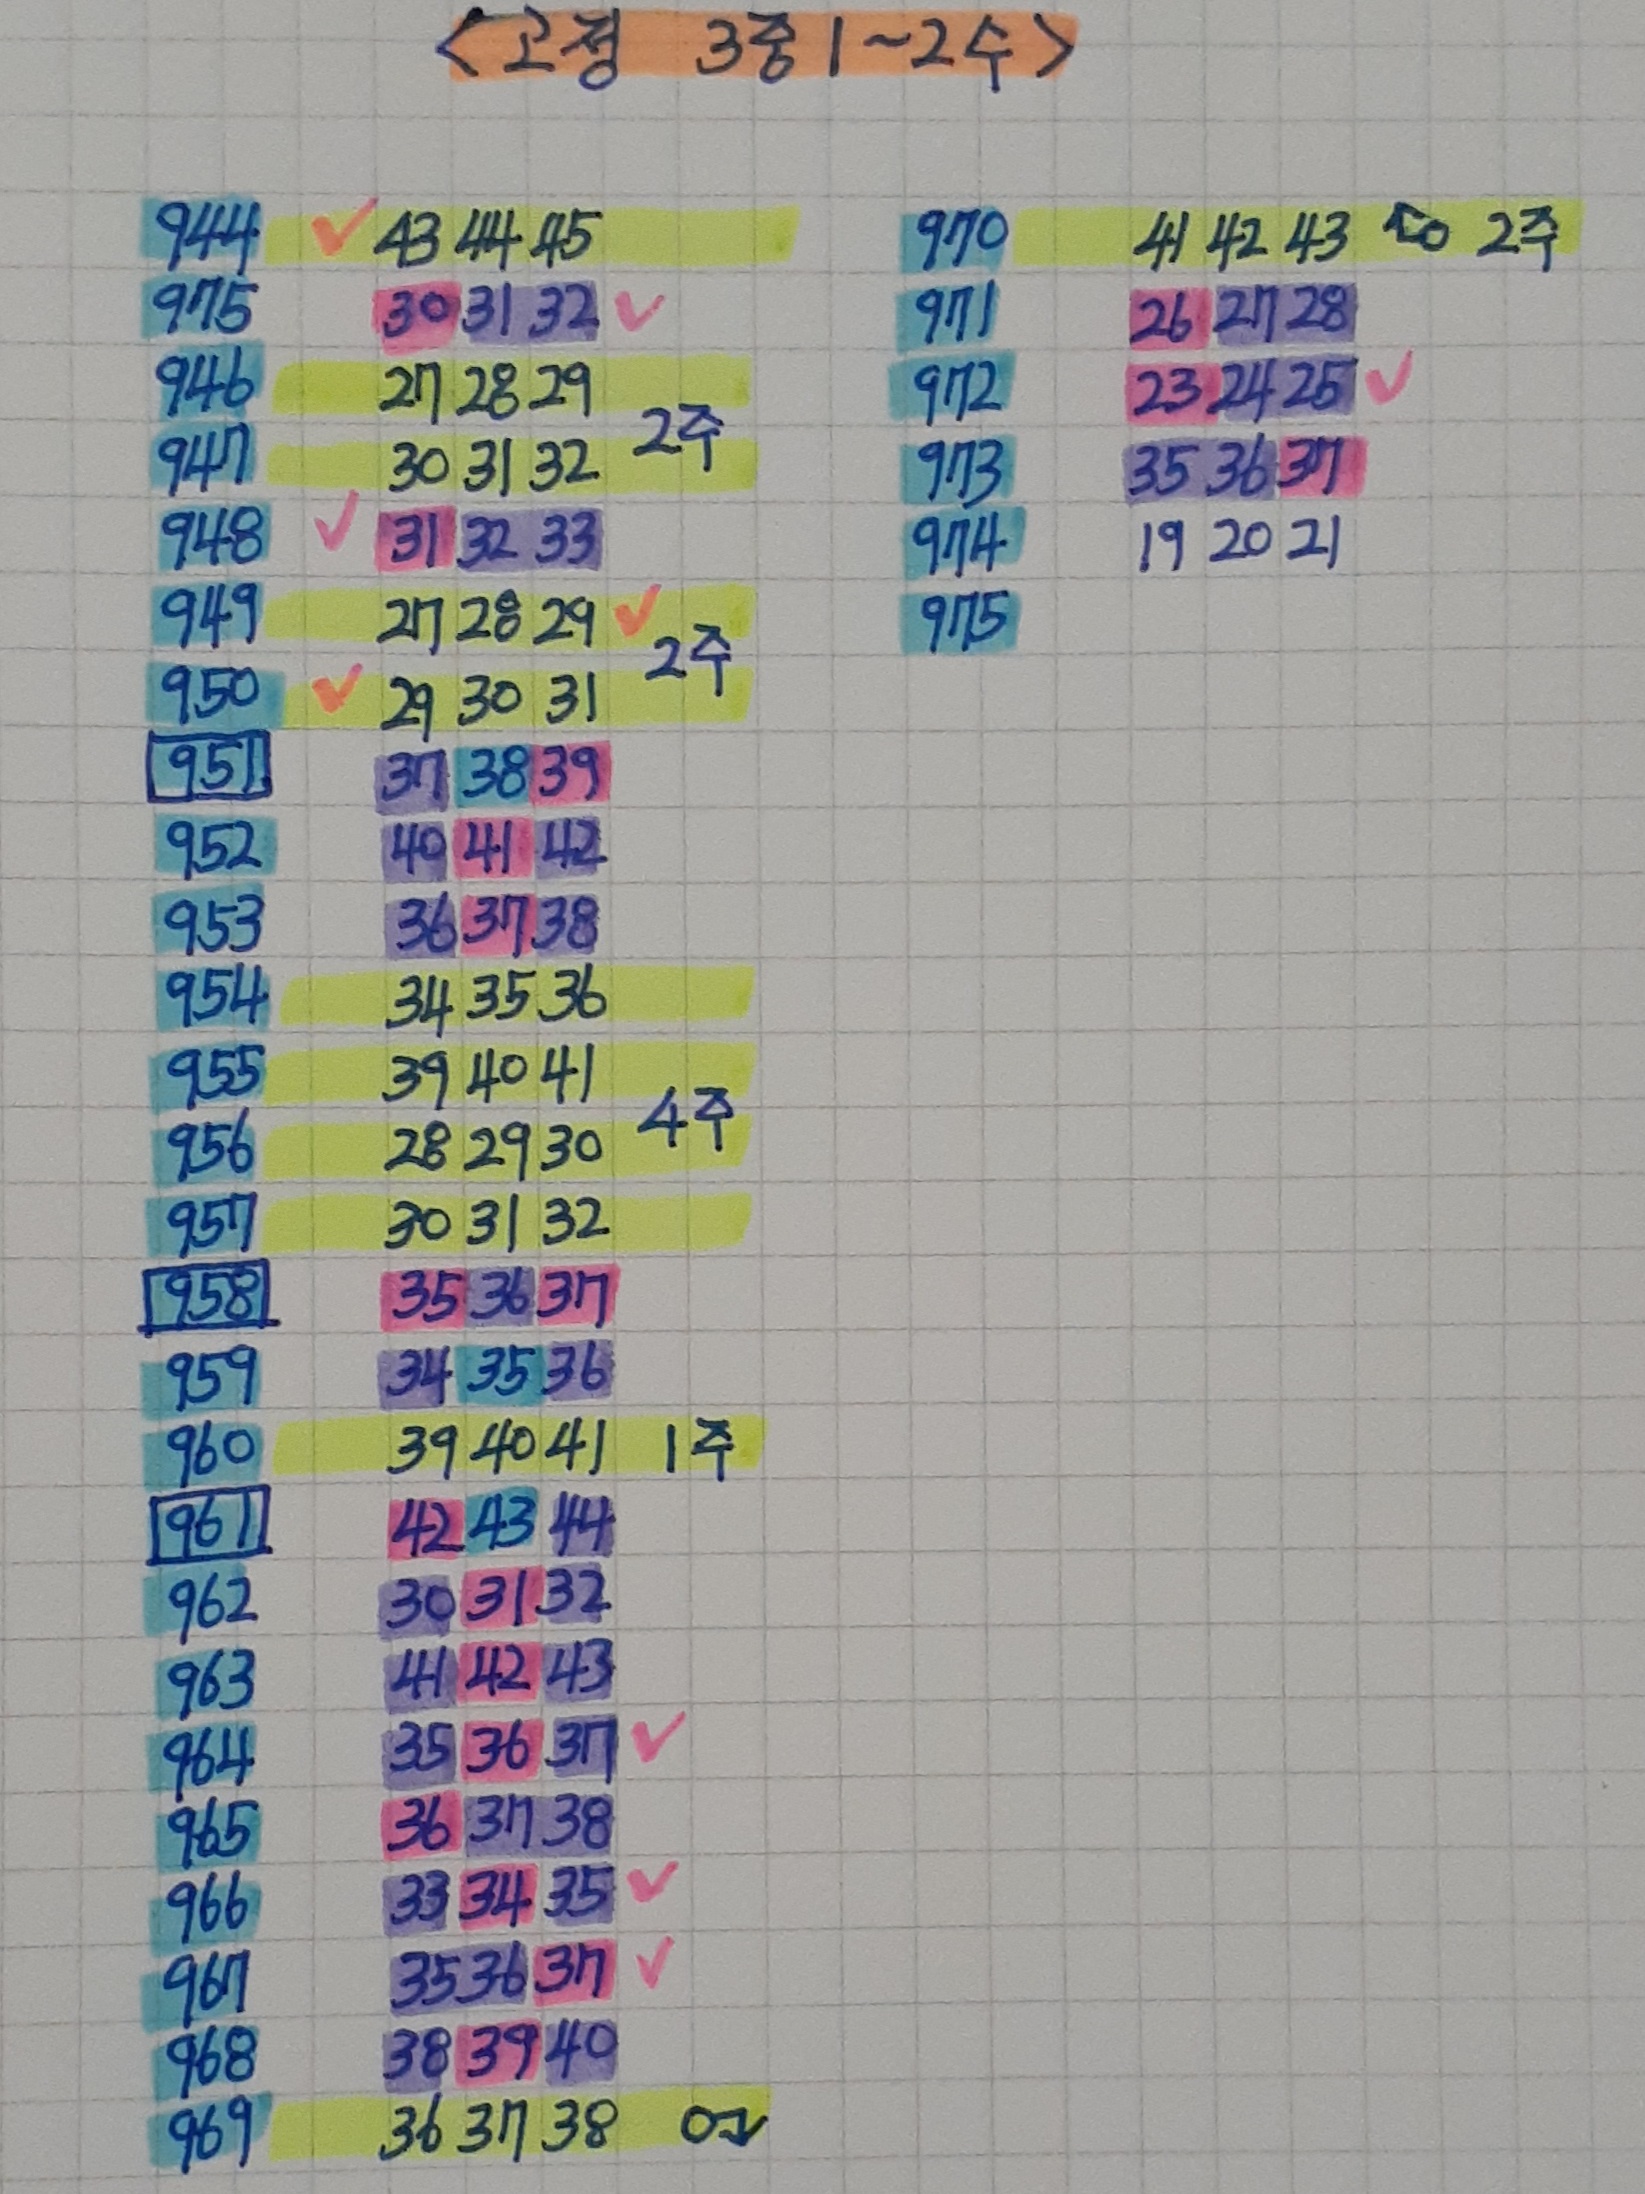 <고정 3중1~2수>
944 43 44 45
975 30 31 32
946 27 28 29
2주
947 30 31 32
948 31 32 33
949 27 28 29
2주
950 29 30 31
951 37 38 39
952 40 41 42
953 36 37 38
954 34 35 36
955 39 40 41
4주
956 28 29 30
957 30 31 32
958 35 36 37
959 34 35 36
960 39 40 41 1주
961 42 43 44
962 30 31 32
963 41 42 43
964 35 36 37
965 36 37 38
966 33 34 35
967 35 36 37
968 38 39 40
969 36 37 38
970 41 42 43 2주
971 26 27 28
972 23 24 25
973 35 36 37
974 19 20 21
975